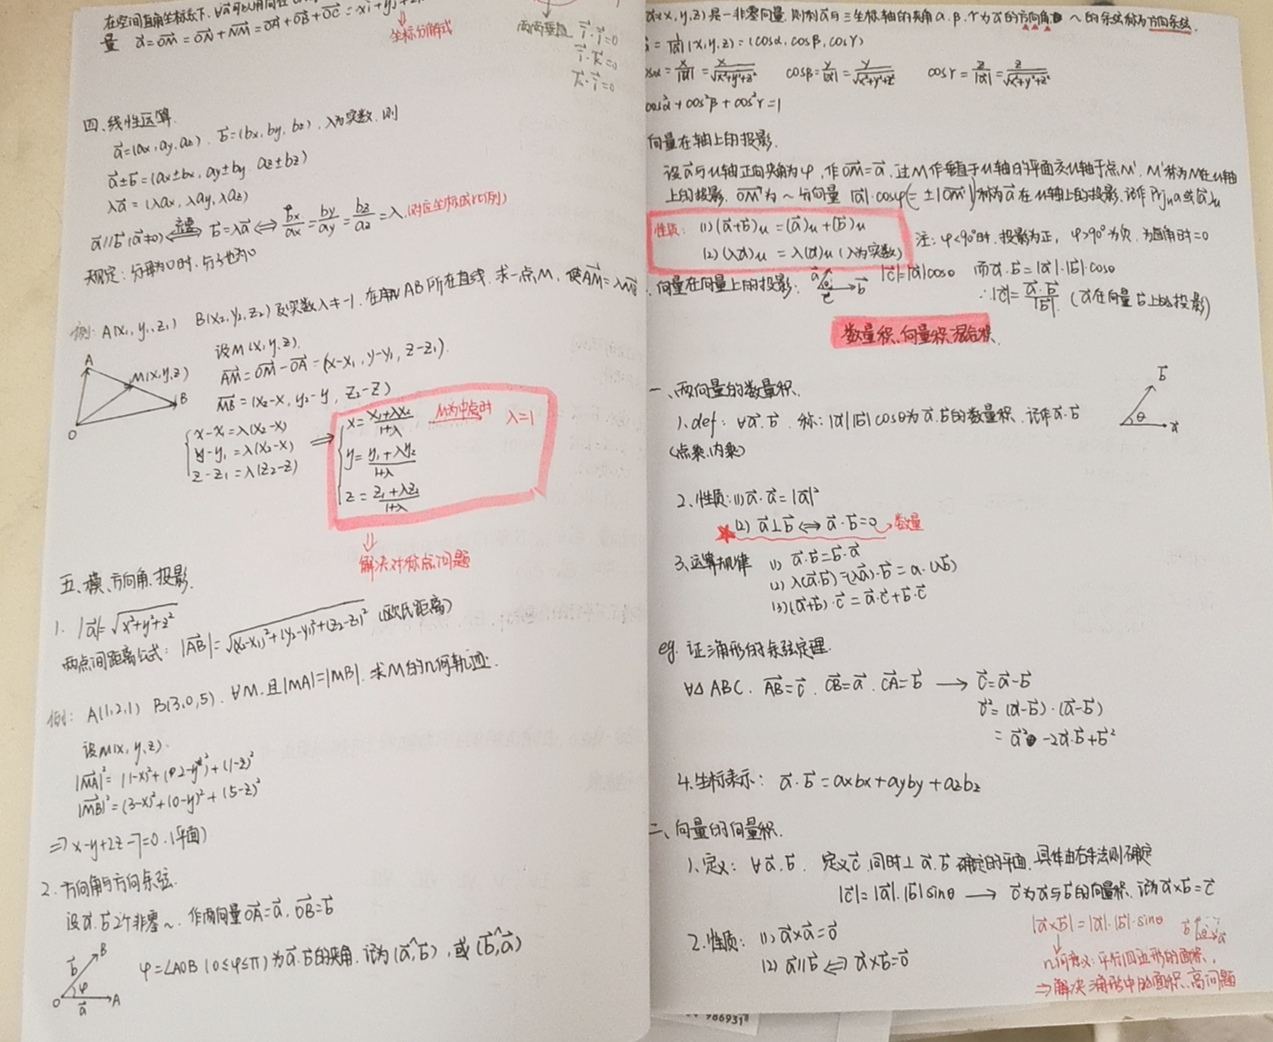 在空间直角坐标系下,
量 a⃗=OM⃗=ON⃗+NM⃗=OA⃗+OB⃗+OC⃗=xi⃗+yj⃗+
坐标分解式
两两垂直 i⃗·j⃗=0
j⃗·k⃗=0
k⃗·i⃗=0
四、线性运算.
a⃗=(ax, ay, az). b⃗=(bx, by, bz), λ为实数, 则
a⃗±b⃗=(ax±bx, ay±by, az±bz)
λa⃗=(λax, λay, λaz)
a⃗∥b⃗(a⃗≠0) ⟺ b⃗=λa⃗ ⟺ bx/ax=by/ay=bz/az=λ (对应坐标成比例)
规定: 分母为0时, 分子也为0
例: A(x₁, y₁, z₁) B(x₂, y₂, z₂) 及实数λ≠-1. 在 AB所在直线. 求一点M, 使AM⃗=λMB⃗
A
M(x,y,z)
B
O
设M(x, y, z).
AM⃗=OM⃗-OA⃗=(x-x₁, y-y₁, z-z₁).
MB⃗=(x₂-x, y₂-y, z₂-z)
x-x₁=λ(x₂-x)
y-y₁=λ(x₂-x)
z-z₁=λ(z₂-z)
⇒
x=(x₁+λx₂)/(1+λ) M为中点时 λ=1
y=(y₁+λy₂)/(1+λ)
z=(z₁+λz₂)/(1+λ)
⇓
解决对称点问题
五、模、方向角、投影.
1. |a⃗|=√(x²+y²+z²)
两点间距离公式: |AB⃗|=√((x₂-x₁)²+(y₂-y₁)²+(z₂-z₁)²) (欧氏距离)
例: A(1,2,1) B(3,0,5). ∀M, 且|MA|=|MB|. 求M的几何轨迹.
设M(x, y, z).
|MA⃗|²=(1-x)²+(2-y)²+(1-z)²
|MB⃗|²=(3-x)²+(0-y)²+(5-z)²
⇒x-y+2z-7=0. (平面)
2. 方向角与方向余弦.
设a⃗, b⃗ 2个非零~. 作两向量OA⃗=a⃗, OB⃗=b⃗
φ=∠AOB (0≤φ≤π) 为a⃗,b⃗的夹角. 记为(a⃗^b⃗), 或(b⃗^a⃗)
b⃗ B
φ
O a⃗ A
(x, y, z)是一非零向量. 则称a⃗与三坐标轴的夹角α, β, γ为a⃗的方向角. ~的余弦称为方向余弦.
=1/|a⃗|(x,y,z)=(cosα, cosβ, cosγ)
cosα=x/|a⃗|=x/√(x²+y²+z²) cosβ=y/|a⃗|=y/√(x²+y²+z²) cosγ=z/|a⃗|=z/√(x²+y²+z²)
cos²α+cos²β+cos²γ=1
向量在轴上的投影.
设a⃗与u轴正向夹角为φ, 作OM⃗=a⃗. 过M作垂直于u轴的平面交u轴于点M'. M'称为M在u轴
上的投影. OM'⃗为~分向量 |a⃗|·cosφ(=±|OM'⃗|)称为a⃗在u轴上的投影. 记作Prjᵤa⃗或(a⃗)ᵤ
性质: (1)(a⃗+b⃗)ᵤ=(a⃗)ᵤ+(b⃗)ᵤ
(2)(λa⃗)ᵤ=λ(a⃗)ᵤ (λ为实数)
注: φ<90°时, 投影为正, φ>90°为负, 为直角时=0
向量在向量上的投影: a⃗ θ c⃗ b⃗ |c⃗|=|a⃗|cosθ 而a⃗·b⃗=|a⃗|·|b⃗|·cosθ
∴|c⃗|=a⃗·b⃗/|b⃗| (a⃗在向量b⃗上的投影)
数量积、向量积、混合积.
一、两向量的数量积.
1. def: ∀a⃗, b⃗. 称: |a⃗||b⃗|cosθ为a⃗,b⃗的数量积. 记作a⃗·b⃗
(点乘、内乘)
b⃗
θ
a⃗
2. 性质: (1)a⃗·a⃗=|a⃗|²
★(2) a⃗⊥b⃗⟺a⃗·b⃗=0 数量
3. 运算规律 (1) a⃗·b⃗=b⃗·a⃗
(2) λ(a⃗·b⃗)=(λa⃗)·b⃗=a·(λb⃗)
(3)(a⃗+b⃗)·c⃗=a⃗·c⃗+b⃗·c⃗
eg. 证三角形的余弦定理.
∀△ABC. AB⃗=c⃗. CB⃗=a⃗. CA⃗=b⃗ ⟶ c⃗=a⃗-b⃗
c⃗²=(a⃗-b⃗)·(a⃗-b⃗)
=a⃗²-2a⃗·b⃗+b⃗²
4. 坐标表示: a⃗·b⃗=axbx+ayby+azbz
二、向量的向量积.
1. 定义: ∀a⃗, b⃗. 定义c⃗, 同时⊥a⃗,b⃗确定的平面. 具体由右手法则确定
|c⃗|=|a⃗|·|b⃗|sinθ ⟶ c⃗为a⃗与b⃗的向量积. 记为a⃗×b⃗=c⃗
2. 性质: (1) a⃗×a⃗=0⃗
(2) a⃗∥b⃗⟺a⃗×b⃗=0⃗
|a⃗×b⃗|=|a⃗|·|b⃗|·sinθ
b⃗ θ a⃗
几何意义: 平行四边形的面积.
⇒解决三角形中的面积、高问题
986931